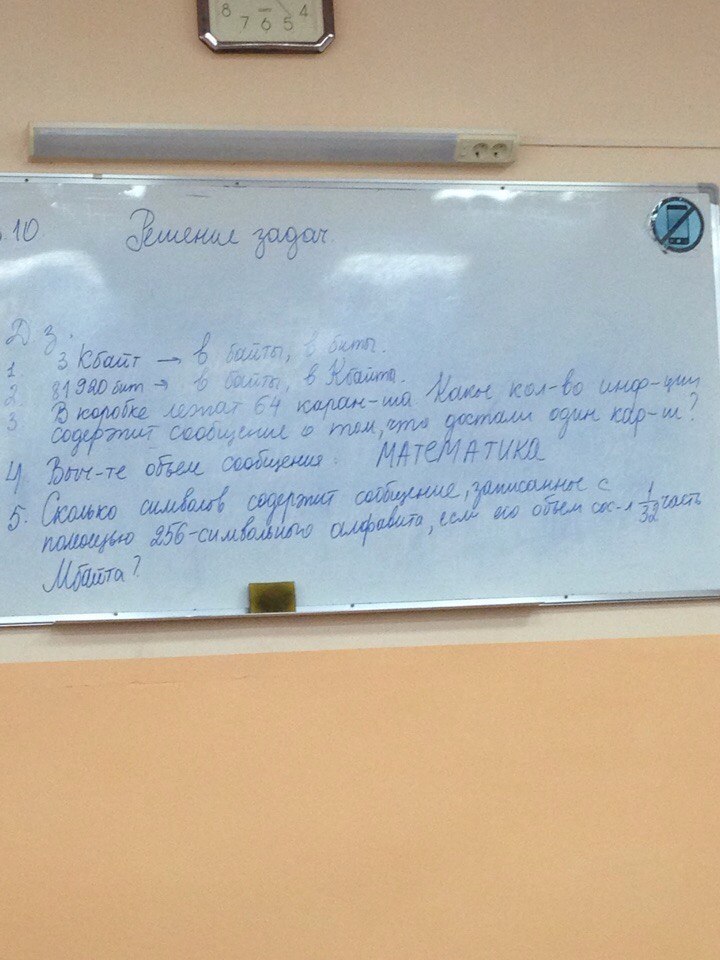 8 7 6 5 4
10. Решение задач.
Д з.
1. 3 Кбайт → в байты, в биты.
2. 81920 бит → в байты, в Кбайты.
3 В коробке лежат 64 каран-ша. Какое кол-во инф-ции
содержит сообщение о том, что достали один кар-ш?
4 Выч-те объем сообщения: МАТЕМАТИКА
5. Сколько символов содержит сообщение, записанное с
помощью 256-символьного алфавита, если его объем сос-л 1/32 часть
Мбайта?